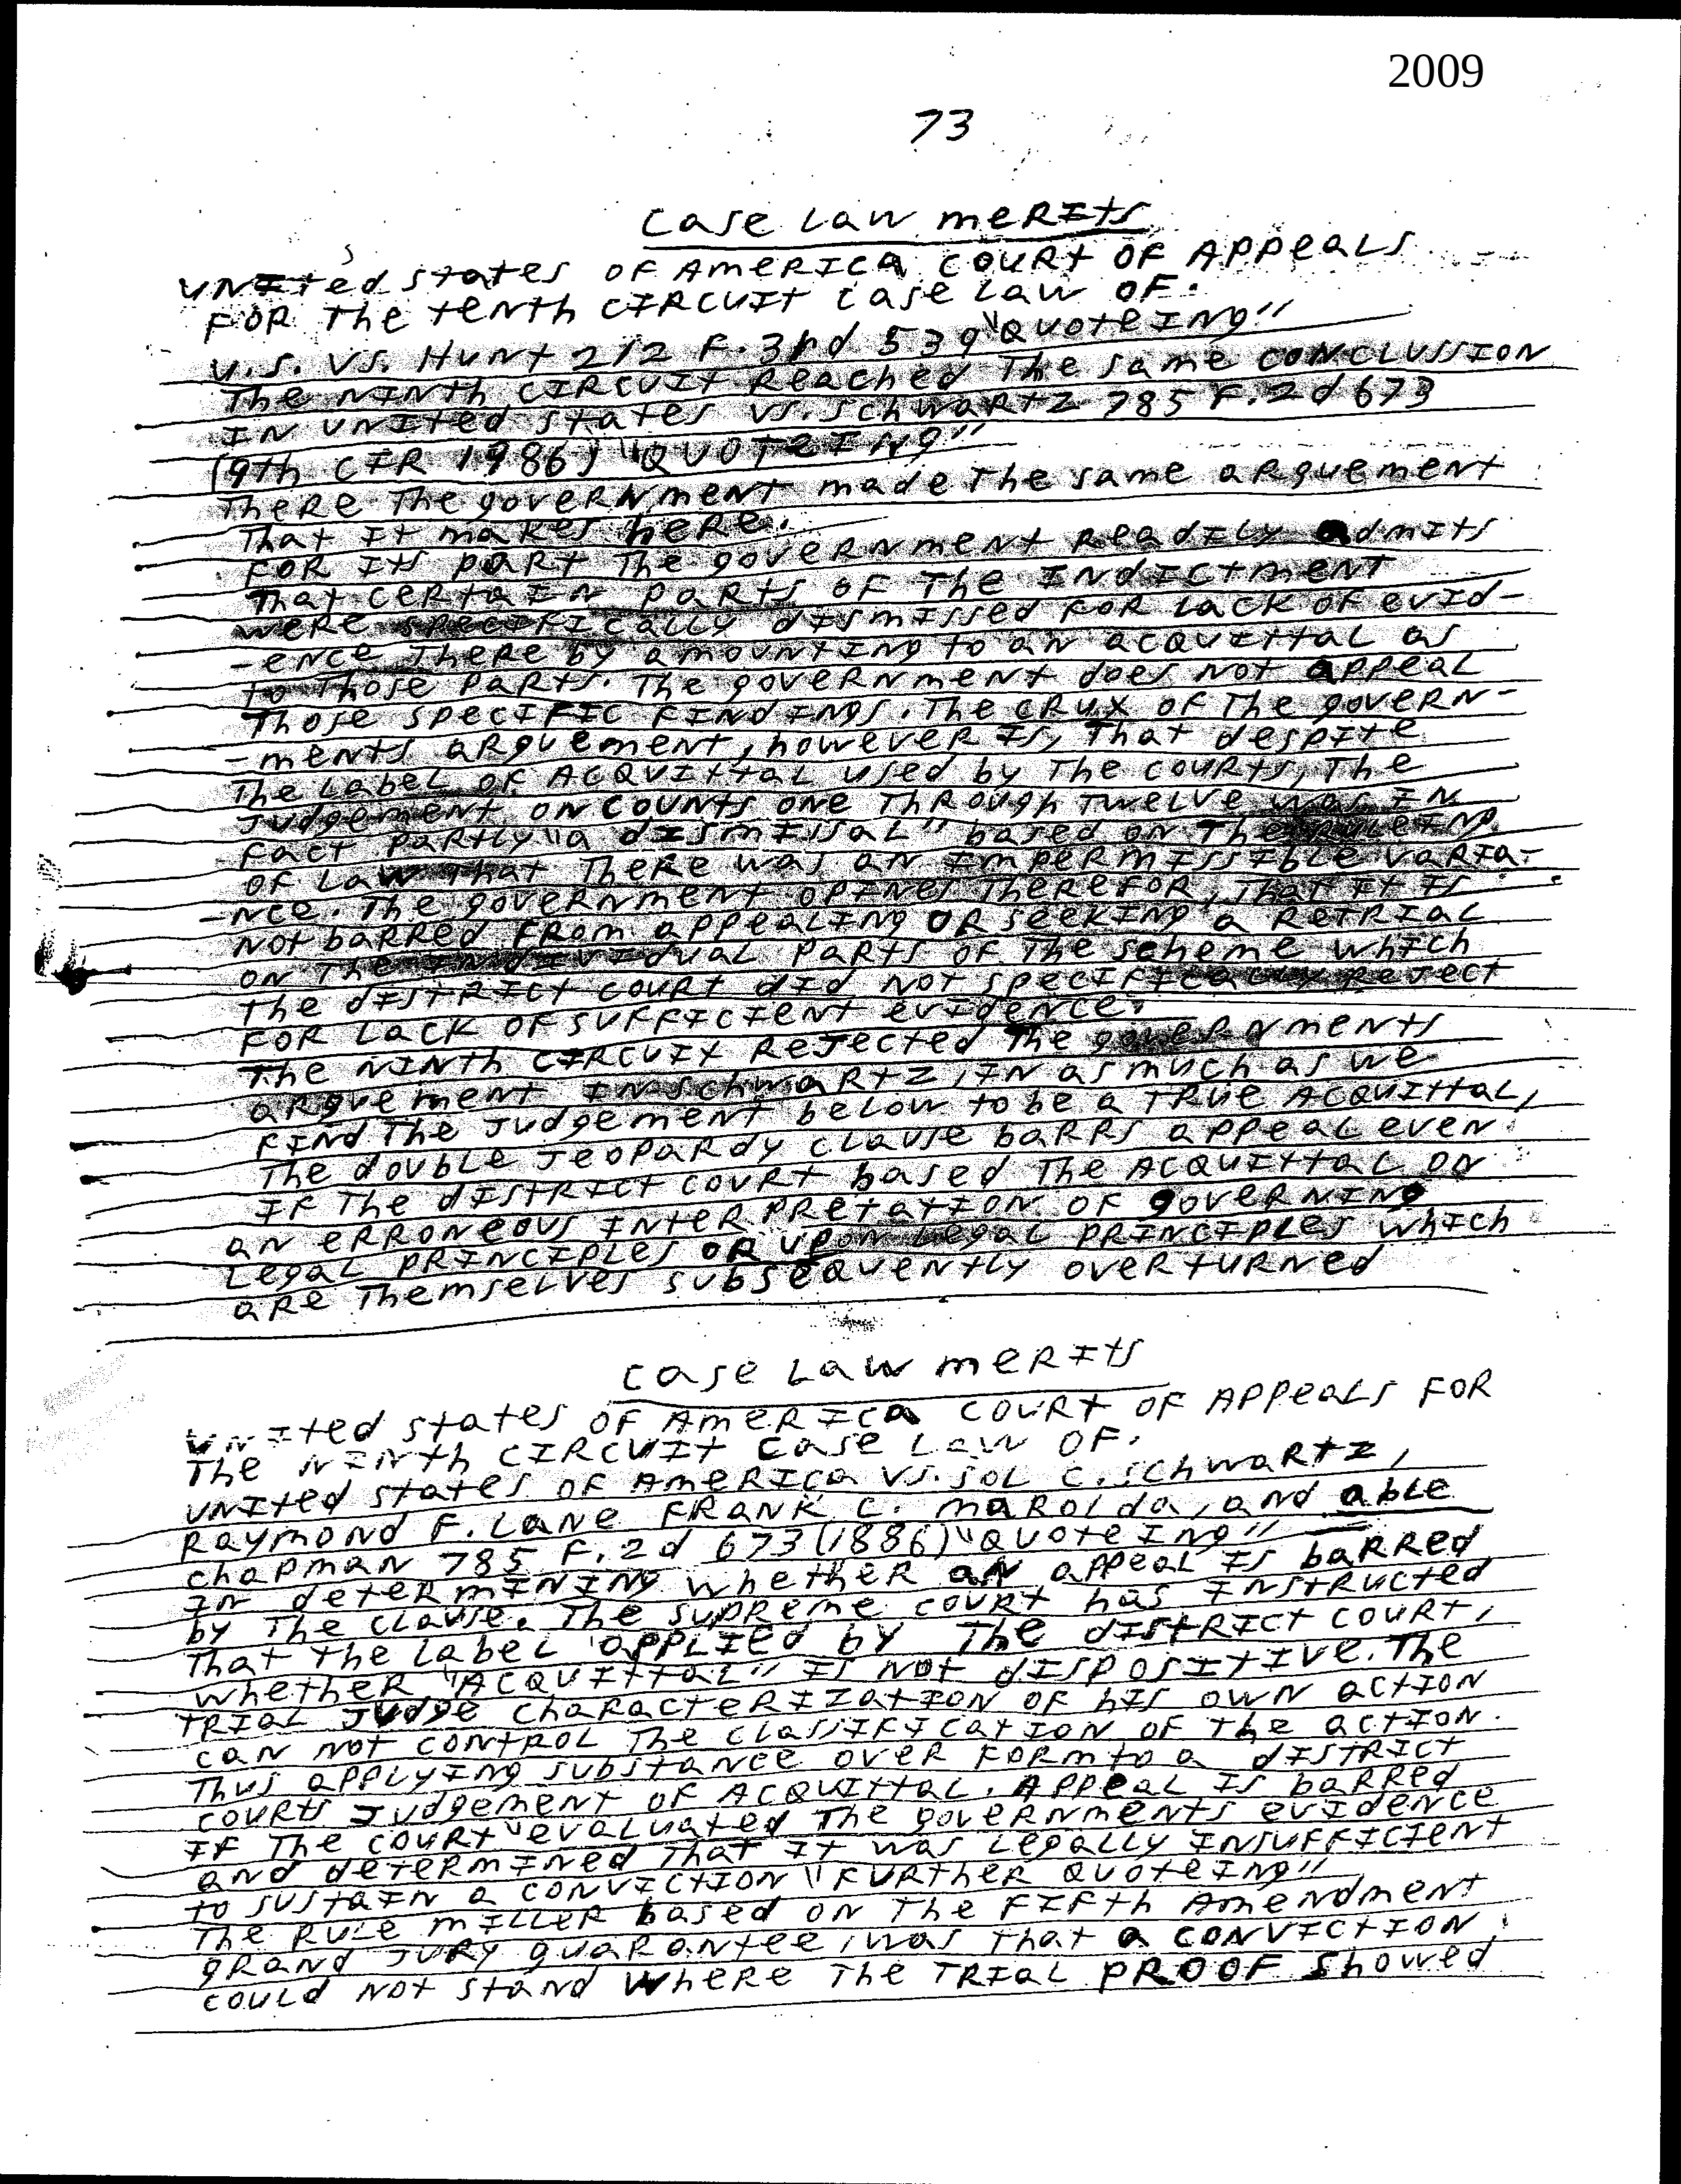 2009
73
Case Law merits
United states of America court of Appeals
For The tenth circuit case law of.
U.S. VS. Hunt 212 F.3rd 539 "Quoteing"
The ninth circuit reached The same conclussion
in united states vs. schwartz 785 F.2d 673
(9th cir 1986) "Quoteing"
There The government made The same arguement
That it makes here.
For its part The government readily admits
That certain parts of The indictment
were specifically dismissed for lack of evid-
-ence There by amounting to an acquittal as
to Those parts. The government does not appeal
Those specific findings. The crux of The govern-
-ments arguement, however is, That despite
The Label of Acquittal used by The courts, The
Judgement on counts one Through Twelve was in
fact partly "a dismissal" based on The ruleing
of law That There was an impermissible varia-
-nce. The government opines Therefor, That it is
not barred from appealing or seeking a retrial
on The individual parts of The scheme which
The district court did not specifically reject
for lack of sufficient evidence.
The ninth circuit rejected The governments
arguement in schwartz, in as much as we
find The Judgement below to be a True Acquittal,
The double Jeopardy clause barrs appeal even
if The district court based The Acquittal on
an erroneous interpretation of governing
Legal principles or upon Legal principles which
are Themselves subsequently overturned
case Law merits
United states of America court of Appeals for
The ninth circuit case Law of.
United states of America vs. Sol C. Schwartz,
Raymond F. Lane Frank C. Marolda, and able
chapman 785 F.2d 673 (1886) "Quoteing"
In determining whether an appeal is barred
by The clause. The supreme court has instructed
That the label applied by The district court,
whether "Acquittal" is not dispositive. The
Trial Judge characterization of his own action
can not control The classification of the action.
Thus applying substance over form to a district
courts Judgement of Acquittal. Appeal is barred
if The court "evaluated The governments evidence
and determined That it was Legally insufficient
to sustain a conviction "Further Quoteing"
The rule miller based on The Fifth Amendment
grand Jury guarantee, was That a conviction
could not stand where The Trial proof showed